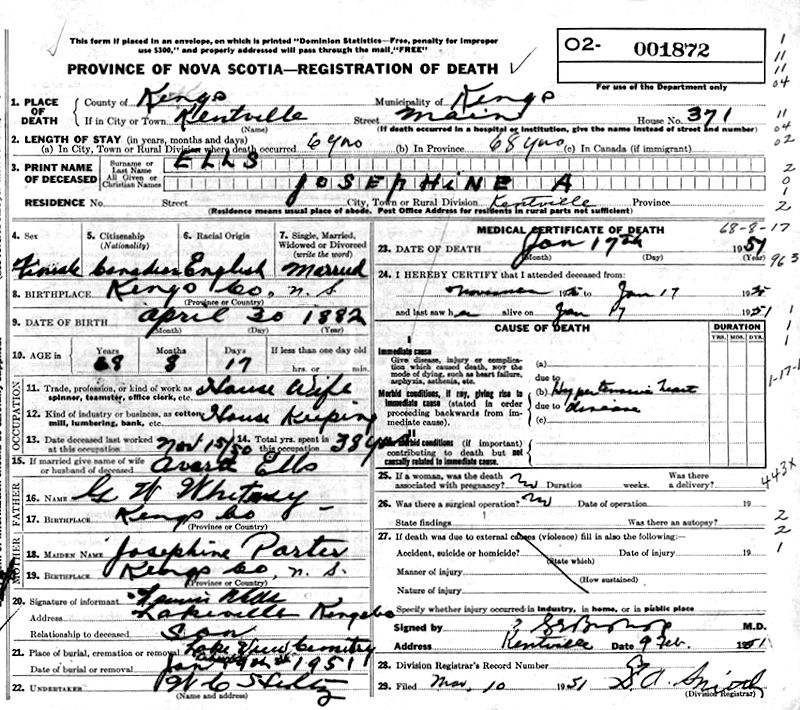 This form if placed in an envelope, on which is printed "Dominion Statistics—Free, penalty for improper
use $300," and properly addressed will pass through the mail, "FREE"
O2- 001872
For use of the Department only
PROVINCE OF NOVA SCOTIA—REGISTRATION OF DEATH
1. PLACE OF DEATH County of Kings Municipality of Kings
If in City or Town Kentville Street Main House No. 371
(Name) (If death occurred in a hospital or institution, give the name instead of street and number)
2. LENGTH OF STAY (in years, months and days)
(a) In City, Town or Rural Division where death occurred 6 yrs (b) In Province 68 yrs (c) In Canada (if immigrant)
3. PRINT NAME OF DECEASED Surname or Last Name ELLS
All Given or Christian Names JOSEPHINE A
RESIDENCE No. Street City, Town or Rural Division Kentville Province
(Residence means usual place of abode. Post Office Address for residents in rural parts not sufficient)
4. Sex 5. Citizenship (Nationality) 6. Racial Origin 7. Single, Married, Widowed or Divorced (write the word)
Female Canadian English Married
8. BIRTHPLACE Kings Co, N. S.
(Province or Country)
9. DATE OF BIRTH April 30 1882
(Month) (Day) (Year)
10. AGE in Years Months Days If less than one day old
68 8 17 hrs. or min.
OCCUPATION
11. Trade, profession, or kind of work as spinner, teamster, office clerk, etc. House Wife
12. Kind of industry or business, as cotton mill, lumbering, bank, etc. House Keeping
13. Date deceased last worked at this occupation Nov 15/50 14. Total yrs. spent in this occupation 38 years
15. If married give name of wife or husband of deceased Ells
FATHER
16. NAME G W Whitney
17. BIRTHPLACE Kings Co
(Province or Country)
MOTHER
18. MAIDEN NAME Josephine Porter
19. BIRTHPLACE Kings Co, N. S.
(Province or Country)
20. Signature of informant
Address Lakeville Kings Co
Relationship to deceased Son
21. Place of burial, cremation or removal Lake View Cemetery
Date of burial or removal Jan 1951
22. UNDERTAKER W C
(Name and address)
MEDICAL CERTIFICATE OF DEATH 68-8-17
23. DATE OF DEATH Jan 17th 1951
(Month) (Day) (Year)
24. I HEREBY CERTIFY that I attended deceased from:
November 19 to Jan 17 19
and last saw her alive on Jan 17 1951
CAUSE OF DEATH DURATION
YRS. MOS. DYS.
I
Immediate cause
Give disease, injury or complication which caused death, NOT the mode of dying, such as heart failure, asphyxia, asthenia, etc.
(a)
due to
Morbid conditions, if any, giving rise to immediate cause (stated in order proceeding backwards from immediate cause).
(b) Hypertensive heart
due to disease
(c)
II
Other morbid conditions (if important) contributing to death but not causally related to immediate cause.
25. If a woman, was the death associated with pregnancy? No Duration weeks. Was there a delivery?
26. Was there a surgical operation? No Date of operation 19
State findings Was there an autopsy?
27. If death was due to external causes (violence) fill in also the following:—
Accident, suicide or homicide? Date of injury 19
(State which)
Manner of injury
(How sustained)
Nature of injury
Specify whether injury occurred in industry, in home, or in public place
Signed by M.D.
Address Kentville Date 9 Feb. 1951
28. Division Registrar's Record Number
29. Filed Mar. 10 1951 D. A. Smith
(Division Registrar)
1
11
11
04
11
04
02
2
0
1
2
963
1
1
1
1-17-1
443X
2
2
1